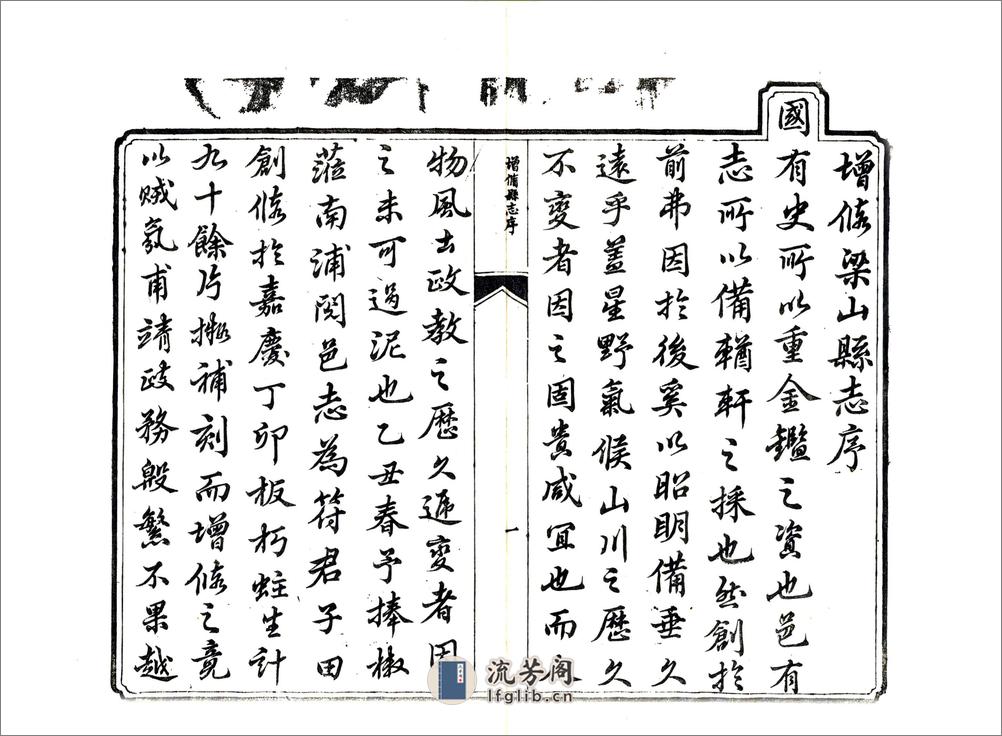 增修梁山縣志序
國有史所以重金鑑之資也邑有
志所以備輶軒之採也然創於
前弗因於後奚以昭明備垂久
遠乎蓋星野氣候山川之歷久
不變者因之固貴咸宜也而
增修縣志序
一
物風土政教之歷久遞變者因
之未可過泥也乙丑春予捧檄
蒞南浦閱邑志為符君子田
創修於嘉慶丁卯板朽蛀生計
九十餘片擬補刻而增修之竟
以賊氛甫靖政務殷繁不果越
流芳阁
lfglib.cn